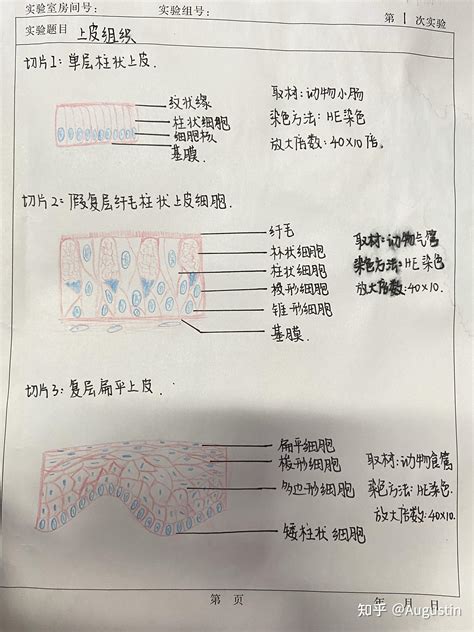 实验室房间号: 实验组号: 第 1 次实验
实验题目 上皮组织
切片1: 单层柱状上皮.
纹状缘
柱状细胞
细胞核
基膜.
取材: 动物小肠
染色方法: HE染色
放大倍数: 40×10倍。
切片2: 假复层纤毛柱状上皮细胞.
纤毛
杯状细胞
柱状细胞
梭形细胞
锥形细胞
基膜.
取材: 动物气管
染色方法: HE染色
放大倍数: 40×10.
切片3: 复层扁平上皮.
扁平细胞
梭形细胞
多边形细胞
矮柱状细胞
取材: 动物食管
染色方法: HE染色.
放大倍数: 40×10.
第 页 年 月 日
知乎 @Augustin